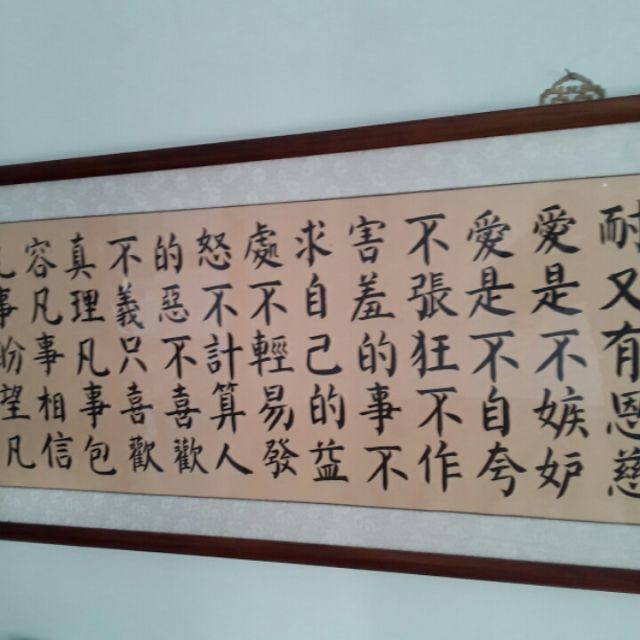 耐又有恩慈
愛是不嫉妒
愛是不自夸
不張狂不作
害羞的事不
求自己的益
處不輕易發
怒不計算人
的惡不喜歡
不義只喜歡
真理凡事包
容凡事相信
凡事盼望凡